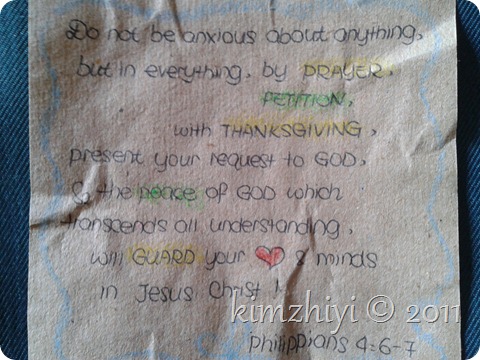 Do not be anxious about anything,
but in everything, by PRAYER,
PETITION,
with THANKSGIVING,
present your request to GOD,
& the peace of GOD which
transcends all understanding,
will GUARD your ❤ & minds
in Jesus Christ!
kimzhiyi © 2011
Philippians 4:6-7